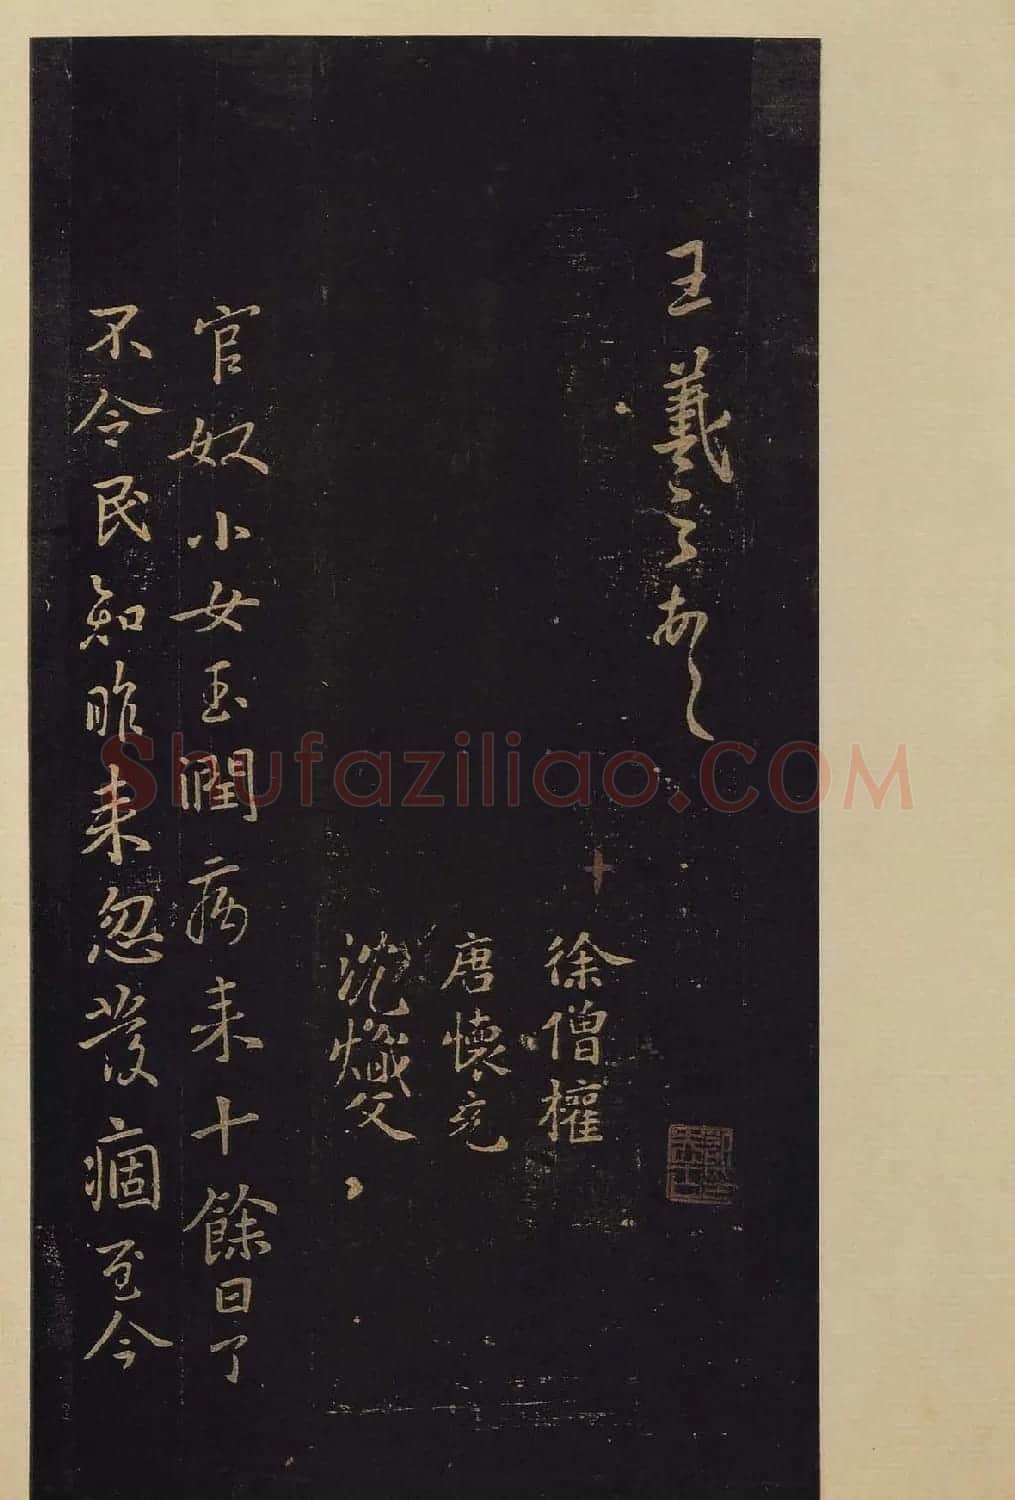 王羲之頓首
徐僧權
唐懷充
沈熾文
官奴小女玉潤病來十餘日了
不令民知昨來忽發痼至今
Shufaziliao.COM